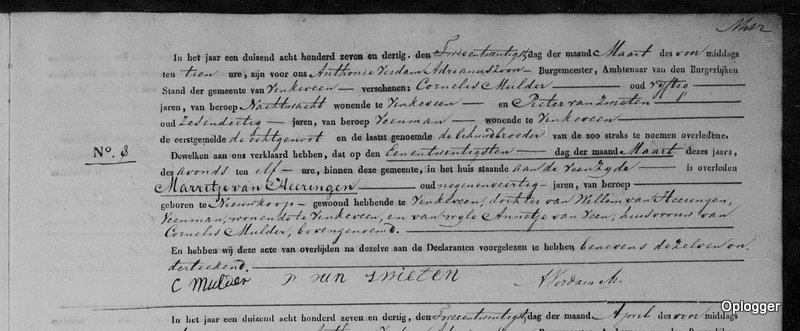 In het jaar een duizend acht honderd zeven en dertig, den Tweeentwintigsten dag der maand Maart des voor middags
ten tien ure, zijn voor ons Anthonie Verdam Adrianuszoon Burgemeester, Ambtenaar van den Burgerlijken
Stand der gemeente van Vinkeveen verschenen: Cornelis Mulder oud vyftig
jaren, van beroep Nachtwacht wonende te Vinkeveen en Pieter van Zwieten
oud Zesendertig jaren, van beroep Veenman wonende te Vinkeveen
de eerstgemelde de echtgenoot en de laatst genoemde de behuwdbroeder van de zoo straks te noemen overledene.
No. 8
Dewelken aan ons verklaard hebben, dat op den Eenentwintigsten dag der maand Maart dezes jaars,
des avonds ten elf ure, binnen deze gemeente, in het huis staande aan de Veenzyde is overleden
Marretje van Heeringen oud negenenveertig jaren, van beroep
geboren te Nieuwkoop gewoond hebbende te Vinkeveen, dochter van Willem van Heeringen,
Veenman, wonende te Vinkeveen, en van wyle Annetje van Veen, huisvrouw van
Cornelis Mulder, bovengenoemd.
En hebben wij deze acte van overlijden na dezelve aan de Declaranten voorgelezen te hebben benevens dezelven on
derteekend.
C Mulder P van Swieten AVerdam A.
In het jaar een duizend acht honderd zeven en dertig, den Tweeentwintigsten dag der maand April des voor middags
Oplogger